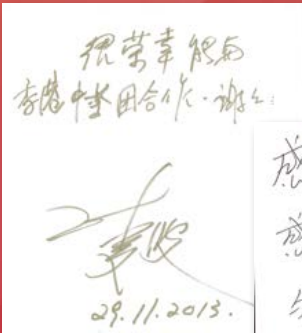 很荣幸能与
香港中乐团合作·谢谢!
29.11.2013.
感
感